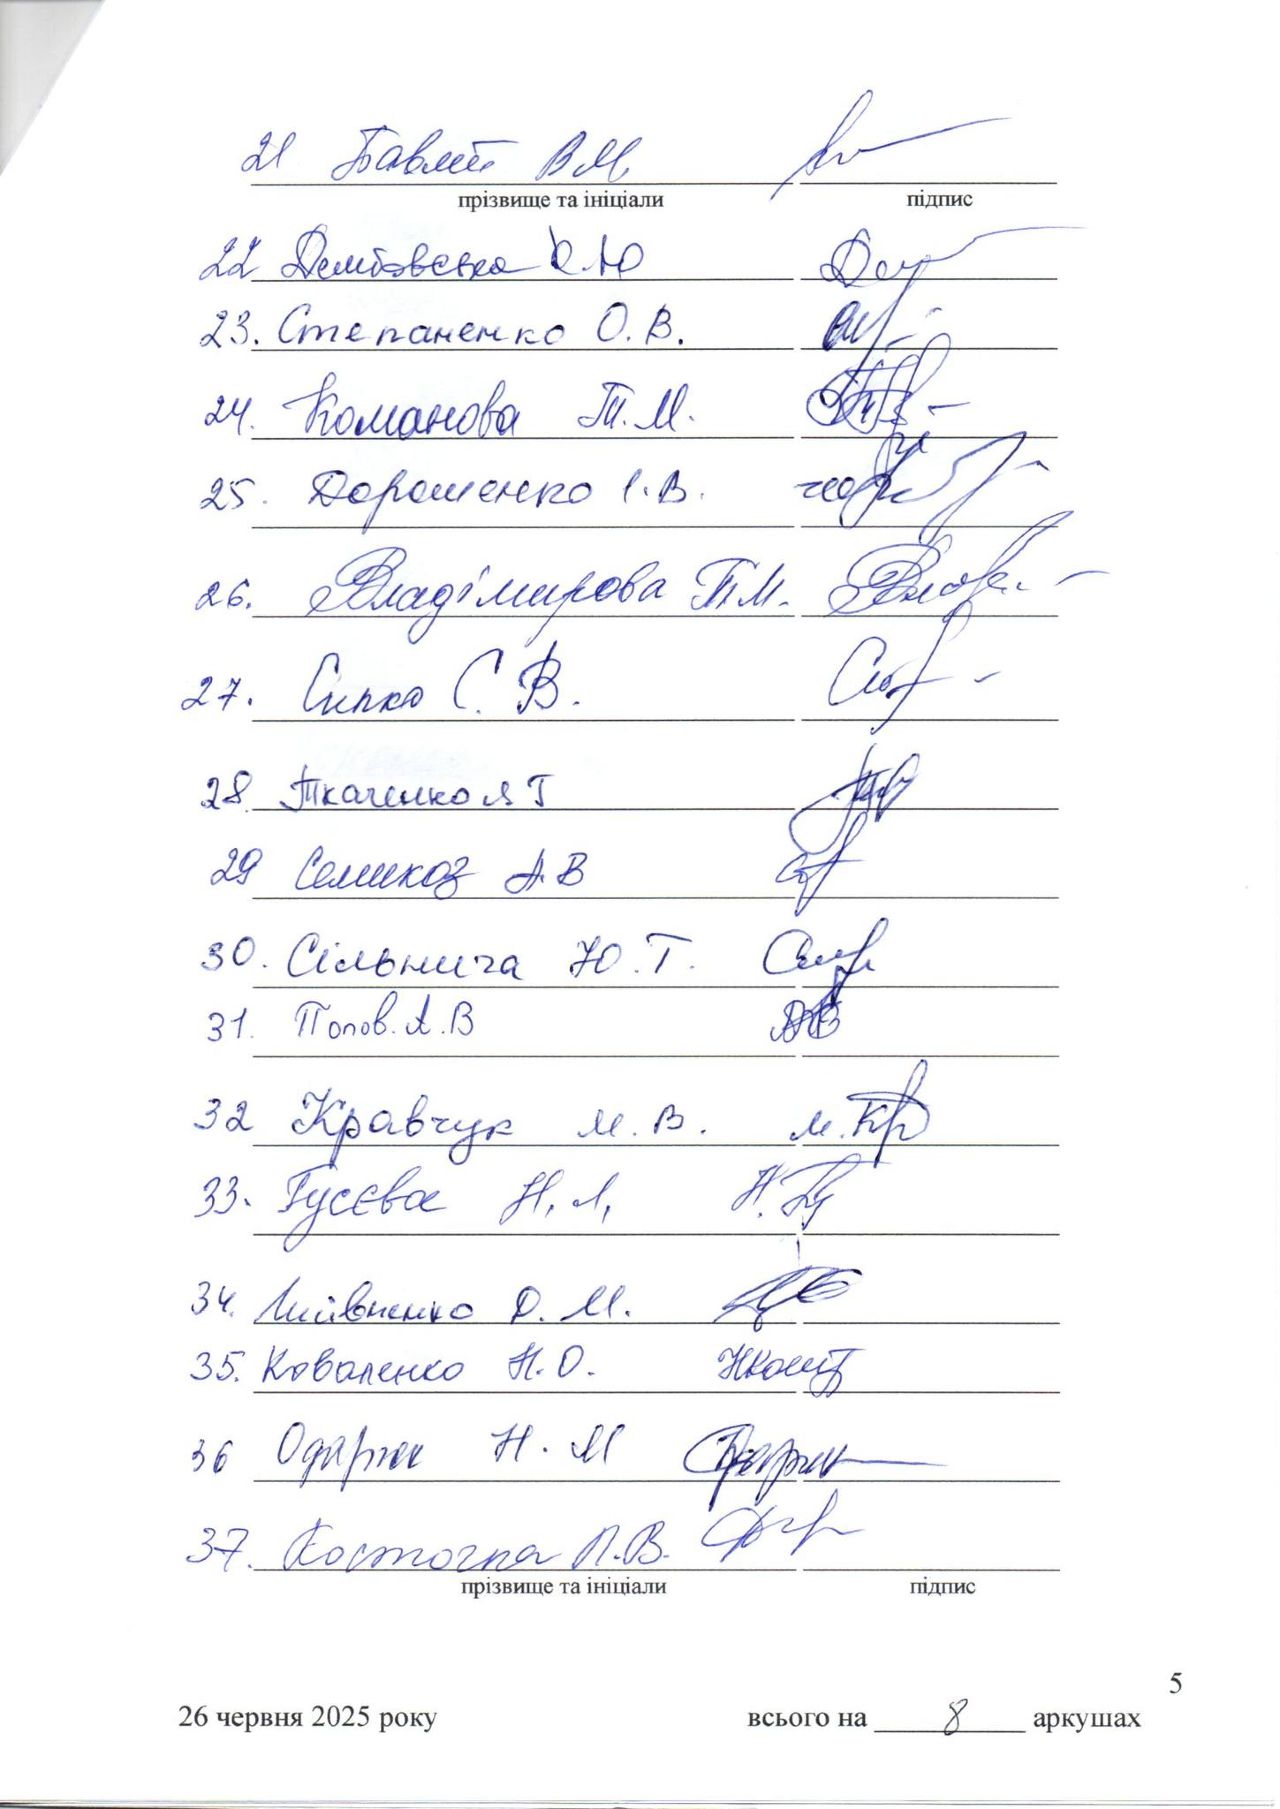 21 Бавлит В М.
прізвище та ініціали підпис
22 Дембовська О.Ю
23. Степаненко О.В.
24. Команова Т.М.
25. Дорошенко І.В.
26. Владімирова Т.М.
27. Сипко С.В.
28. Ткаченко А Г
29 Семикоз А.В
30. Сільнича Ю.Т.
31. Попов. А.В
32 Кравчук М.В. м.Кр
33. Гусєва Н.Л.
34. Д.М.
35. Коваленко Н.О.
36 Одарюк Н.М
37. Косточка Л.В.
прізвище та ініціали підпис
5
26 червня 2025 року всього на 8 аркушах